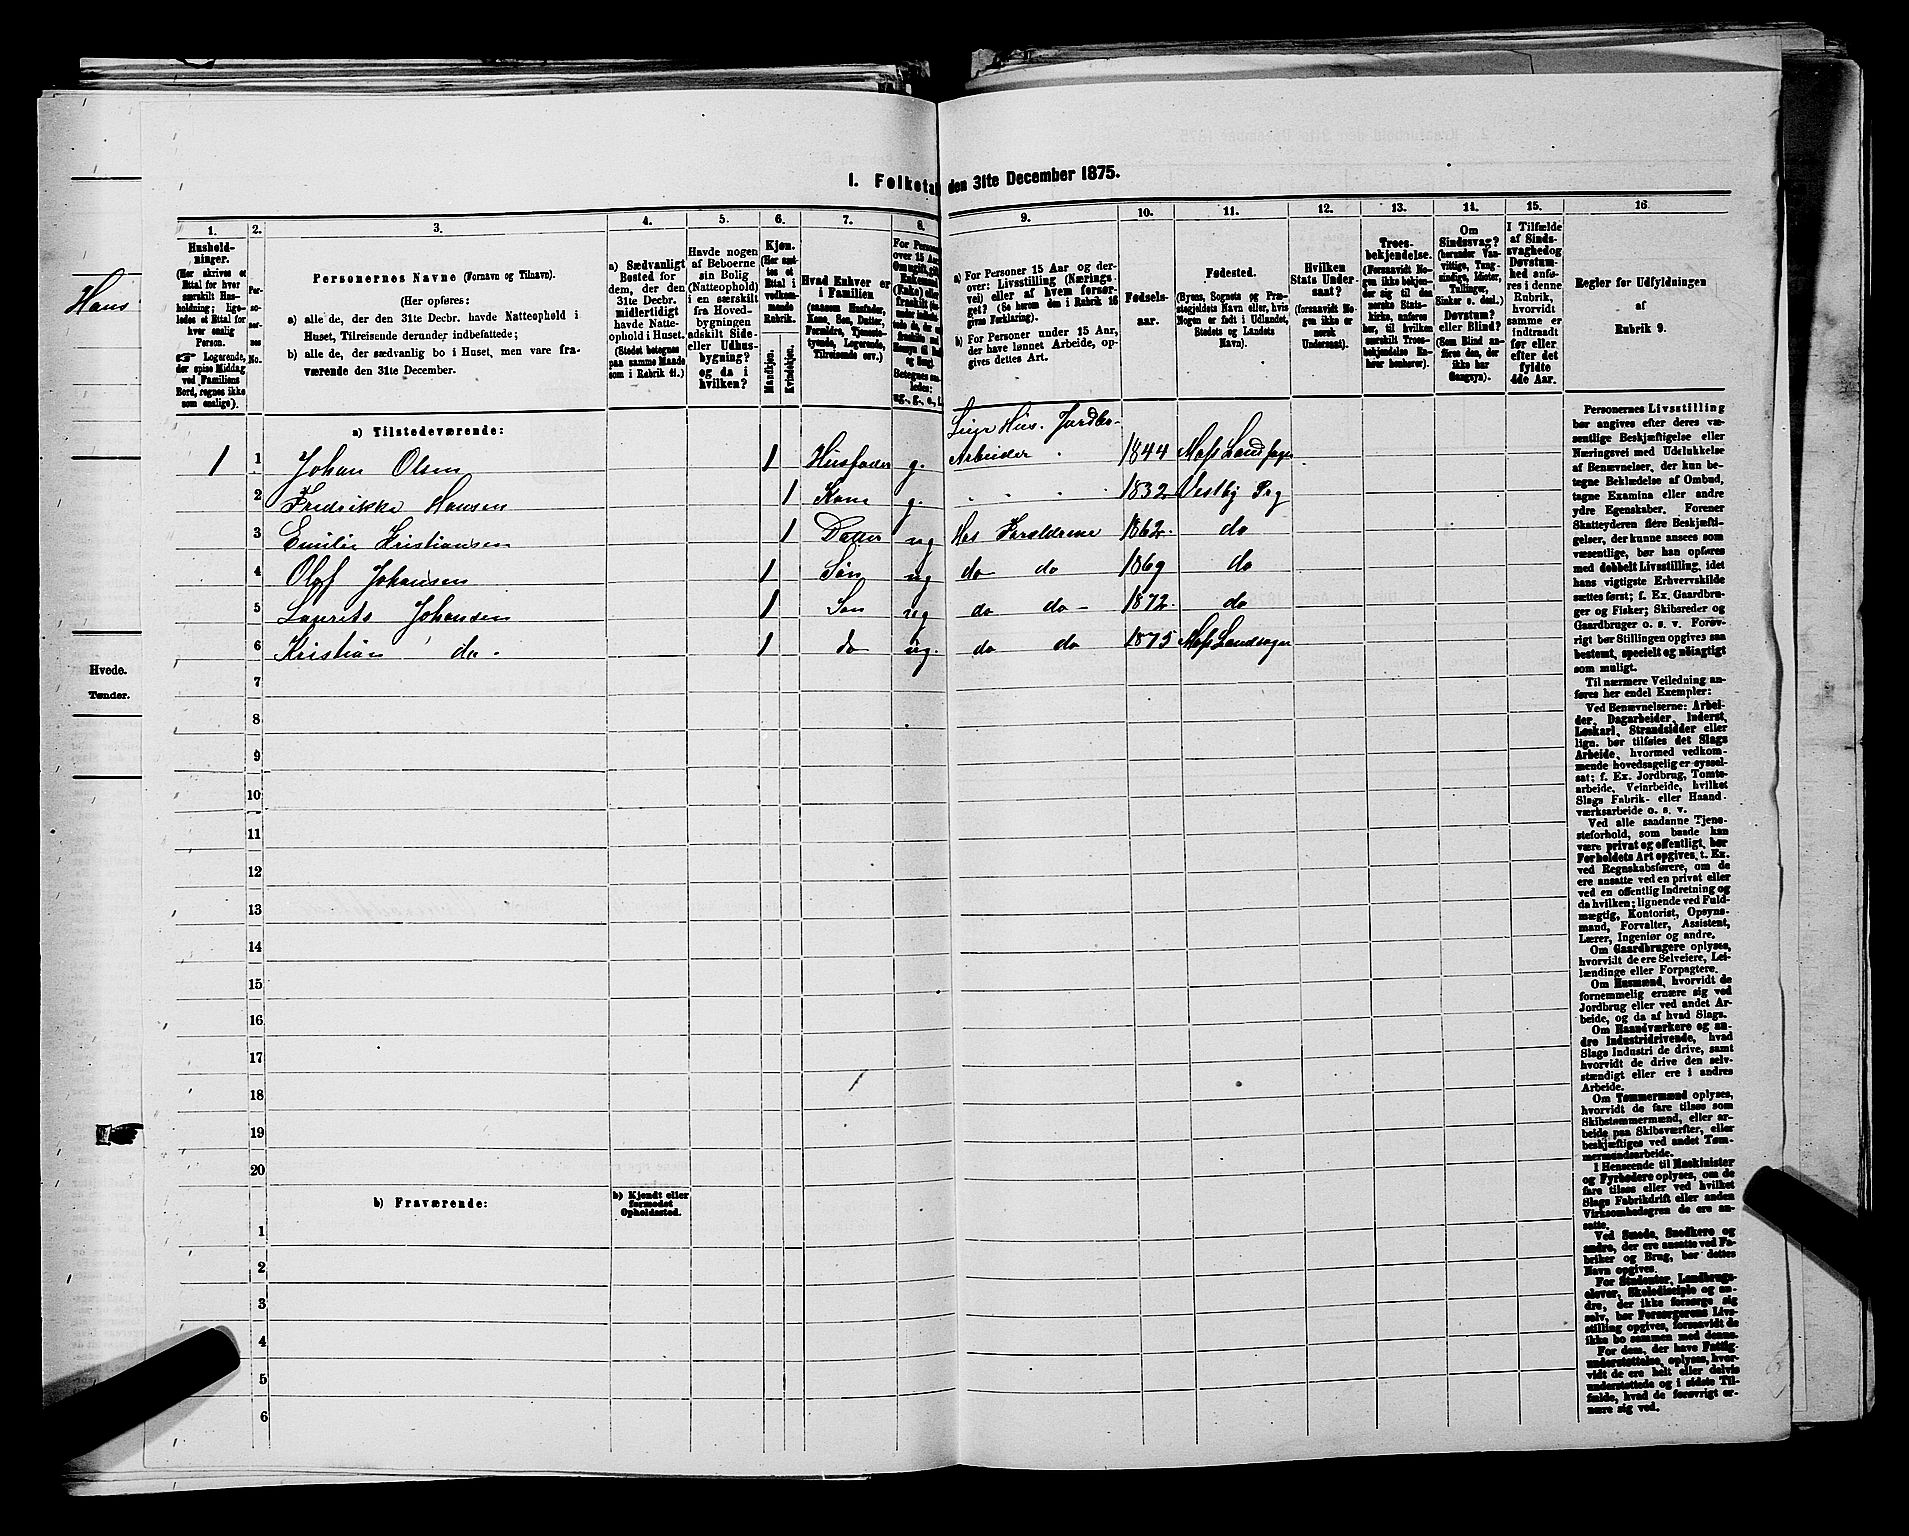 I. Folketal den 31te December 1875.
Hans
Hvede.
Tønder.
1. 2. 3. 4. 5. 6. 7. 8. 9. 10. 11. 12. 13. 14. 15. 16.
Hushold-
ninger.
(Her skrives et
Ettal for hver
særskilt Hus-
holdning; lige-
ledes et Ettal for
hver enslig
Person.
☞ Logerende,
der spise Middag
ved Familiens
Bord, regnes ikke
som enslige).
Per-
so-
ner-
nes
No.
Personernes Navne (Fornavn og Tilnavn).
(Her opføres:
a) alle de, der den 31te Decbr. havde Natteophold i
Huset, Tilreisende derunder indbefattede;
b) alle de, der sædvanlig bo i Huset, men vare fra-
værende den 31te December.
a) Sædvanligt
Bosted for
dem, der den
31te Decbr.
midlertidigt
havde Natte-
ophold i Huset.
(Stedet betegnes
paa samme Maade
som i Rubrik 11.)
Havde nogen
af Beboerne
sin Bolig
(Natteophold)
i en særskilt
fra Hoved-
bygningen
adskilt Side-
eller Udhus-
bygning?
og da i
hvilken?
Kjøn.
(Her sæt-
tes et
Ettal i
vedkom-
mende
Rubrik.
Mandkjøn.
Kvindekjøn.
Hvad Enhver er
i Familien
(saasom Husfader,
Kone, Søn, Datter,
Forældre, Tjeneste-
tyende, Logerende,
Tilreisende osv.)
For Personer
over 15 Aar
ug., g., e., f.
a) For Personer 15 Aar og der-
over: Livsstilling (Nærings-
vei) eller af hvem forsør-
get? (Se herom den i Rubrik 16
givne Forklaring).
b) For Personer under 15 Aar,
der have lønnet Arbeide, op-
gives dettes Art.
Fødsels-
aar.
Fødested.
(Byens, Sognets og Præ-
stegjeldets Navn eller, hvis
Nogen er født i Udlandet,
Stedets og Landets
Navn).
Hvilken
Stats Under-
saat?
(forsaavidt No-
gen ikke er
norsk
Undersaat).
Troes-
bekjendelse.
(Forsaavidt No-
gen ikke bekjen-
der sig til den
norske Stats-
kirke, anføres
her, til hvilken
særskilt Troes-
bekjendelse En-
hver henhører).
Om
Sindssvag?
(herunder Van-
vittige, Tung-
sindige, Idioter,
Tullinger,
Sinker o. desl.)
Døvstum?
eller Blind?
(Som Blind an-
føres den, der
ikke har
Gangsyn).
I Tilfælde
af Sinds-
svaghed og
Døvstum-
hed anfø-
res i denne
Rubrik,
hvorvidt
samme er
indtraadt
før eller
efter det
fyldte
4de Aar.
Regler for Udfyldningen
af
Rubrik 9.
a) Tilstedeværende:
Hus. Jordbr.
1 1 Johan Olsen 1 Husfader g. Arbeider 1844 Moss Landsogn
2 Fredrikke Hansen 1 Kone g. 1832 Vestby Prg
3 Emilie Kristiansen 1 Datter ug Hos Forældrene 1862. do
4 Olaf Johansen 1 Søn ug do do 1869 do
5 Laurits Johansen 1 Søn ug do do - 1872. do
6 Kristian do. 1 do ug. do do 1875 Moss Landsogn
7
8
9
10
11
12
13
14
15
16
17
18
19
20
b) Fraværende:
b) Kjendt eller
formodet
Opholdssted.
1
2
3
4
5
6
Personernes Livsstilling
bør angives efter deres væ-
sentlige Beskjæftigelse eller
Næringsvei med Udelukkelse
af Benævnelser, der kun be-
tegne Beklædelse af Ombud,
tagne Examina eller andre
ydre Egenskaber. Forener
Skatteyderen flere Beskjæfti-
gelser, der kunne ansees som
væsentlige, bør han opføres
med dobbelt Livsstilling, idet
hans vigtigste Erhvervskilde
sættes først; f. Ex. Gaardbru-
ger og Fisker; Skibsreder og
Gaardbruger o. s. v. Forøv-
rigt bør Stillingen opgives saa
bestemt, specielt og nøiagtigt
som muligt.
Til nærmere Veiledning an-
føres her endel Exempler:
Ved Benævnelserne: Arbei-
der, Dagarbeider, Inderst,
Løskarl, Strandsidder eller
lign. bør tilføies det Slags
Arbeide, hvormed vedkom-
mende hovedsagelig er syssel-
sat; f. Ex. Jordbrug, Tomte-
arbeide, Veiarbeide, hvilket
Slags Fabrik- eller Haand-
værksarbeide o. s. v.
Ved alle saadanne Tjene-
steforhold, som baade kan
være privat og offentligt, bør
Forholdets Art opgives, t. Ex.
ved Regnskabsførere, om de
ere ansatte ved en privat eller
ved en offentlig Indretning og
da hvilken; lignende ved Fuld-
mægtig, Kontorist, Opsyns-
mand, Forvalter, Assistent,
Lærer, Ingeniør og andre.
Om Gaardbrugere oplyses,
hvorvidt de ere Selveiere, Lei-
lændinge eller Forpagtere.
Om Husmænd, hvorvidt de
fornemmelig ernære sig ved
Jordbrug eller ved andet Ar-
beide, og da af hvad Slags.
Om Haandværkere og an-
dre Industridrivende, hvad
Slags Industri de drive, samt
hvorvidt de drive den selv-
stændigt eller ere i andres
Arbeide.
Om Tømmermænd oplyses,
hvorvidt de fare tilsøs som
Skibstømmermænd, eller ar-
beide paa Skibsværfter, eller
beskjæftiges ved andet Tøm-
mermandsarbeide.
I Henseende til Maskinister
og Fyrbødere oplyses, om de
fare tilsøs eller ved hvilket
Slags Fabrikdrift eller anden
Virksomhedsgren de ere an-
satte.
Ved Smede, Snedkere og
andre, der ere ansatte ved Fa-
briker og Brug, bør dettes
Navn opgives.
For Studenter, Landbrugs-
elever, Skoledisciple og an-
dre, der ikke forsørge sig
selv, bør Forsørgerens Livs-
stilling opgives, forsaavidt de
ikke bo sammen med denne.
For dem, der have Fattig-
understøttelse, oplyses, hvor-
vidt de ere helt eller delvis
understøttede og i sidste Til-
fælde, hvad de forøvrigt er-
nære sig ved.